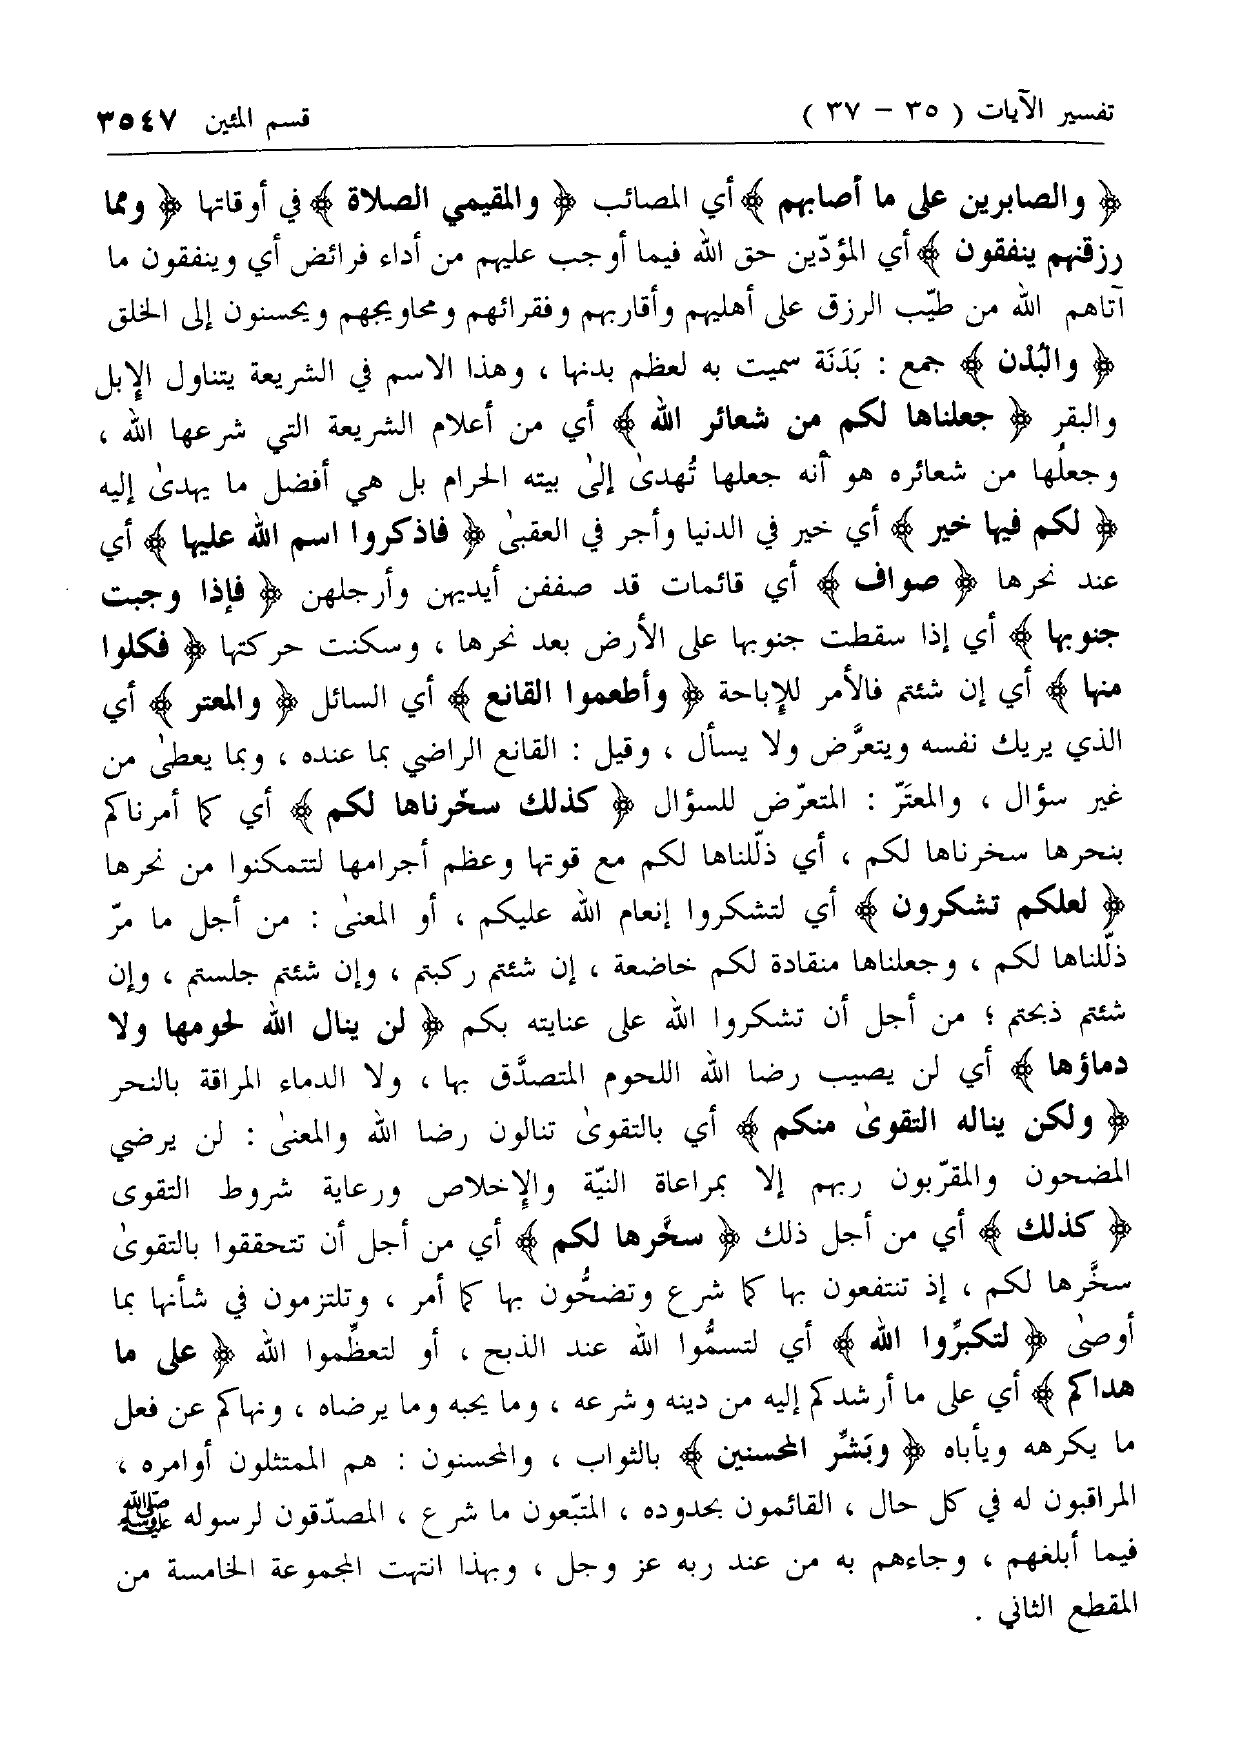 تفسير الآيات ( ٣٥ - ٣٧ ) قسم المئين ٣٥٤٧
﴿ والصابرين على ما أصابهم ﴾ أي المصائب ﴿ والمقيمي الصلاة ﴾ في أوقاتها ﴿ ومما
رزقنٰهم ينفقون ﴾ أي المؤدّين حق الله فيما أوجب عليهم من أداء فرائض أي وينفقون ما
آتاهم الله من طيّب الرزق على أهليهم وأقاربهم وفقرائهم ومحاويجهم ويحسنون إلى الخلق
﴿ والبُدْن ﴾ جمع : بَدَنَة سميت به لعظم بدنها ، وهذا الاسم في الشريعة يتناول الإبل
والبقر ﴿ جعلناها لكم من شعائر الله ﴾ أي من أعلام الشريعة التي شرعها الله ،
وجعلُها من شعائره هو أنه جعلها تُهدىٰ إلىٰ بيته الحرام بل هي أفضل ما يهدىٰ إليه
﴿ لكم فيها خير ﴾ أي خير في الدنيا وأجر في العقبىٰ ﴿ فاذكروا اسم الله عليها ﴾ أي
عند نحرها ﴿ صواف ﴾ أي قائمات قد صففن أيديهن وأرجلهن ﴿ فإذا وجبت
جنوبها ﴾ أي إذا سقطت جنوبها على الأرض بعد نحرها ، وسكنت حركتها ﴿ فكلوا
منها ﴾ أي إن شئتم فالأمر للإباحة ﴿ وأطعموا القانع ﴾ أي السائل ﴿ والمعتر ﴾ أي
الذي يريك نفسه ويتعرَّض ولا يسأل ، وقيل : القانع الراضي بما عنده ، وبما يعطىٰ من
غير سؤال ، والمعتَرّ : المتعرّض للسؤال ﴿ كذلك سخّرناها لكم ﴾ أي كما أمرناكم
بنحرها سخرناها لكم ، أي ذلّلناها لكم مع قوتها وعظم أجرامها لتتمكنوا من نحرها
﴿ لعلكم تشكرون ﴾ أي لتشكروا إنعام الله عليكم ، أو المعنىٰ : من أجل ما مرّ
ذلّلناها لكم ، وجعلناها منقادة لكم خاضعة ، إن شئتم ركبتم ، وإن شئتم جلستم ، وإن
شئتم ذبحتم ؛ من أجل أن تشكروا الله على عنايته بكم ﴿ لن ينال الله لحومها ولا
دماؤها ﴾ أي لن يصيب رضا الله اللحوم المتصدَّق بها ، ولا الدماء المراقة بالنحر
﴿ ولكن يناله التقوىٰ منكم ﴾ أي بالتقوىٰ تنالون رضا الله والمعنىٰ : لن يرضي
المضحون والمقرّبون ربهم إلا بمراعاة النيّة والإخلاص ورعاية شروط التقوى
﴿ كذلك ﴾ أي من أجل ذلك ﴿ سخَّرها لكم ﴾ أي من أجل أن تتحققوا بالتقوىٰ
سخَّرها لكم ، إذ تنتفعون بها كما شرع وتضحُّون بها كما أمر ، وتلتزمون في شأنها بما
أوصىٰ ﴿ لتكبرِّوا الله ﴾ أي لتسمُّوا الله عند الذبح ، أو لتعظِّموا الله ﴿ على ما
هداكم ﴾ أي على ما أرشدكم إليه من دينه وشرعه ، وما يحبه وما يرضاه ، ونهاكم عن فعل
ما يكرهه ويأباه ﴿ وبَشِّر المحسنين ﴾ بالثواب ، والمحسنون : هم الممتثلون أوامره ،
المراقبون له في كل حال ، القائمون بحدوده ، المتبّعون ما شرع ، المصدّقون لرسوله ﷺ
فيما أبلغهم ، وجاءهم به من عند ربه عز وجل ، وبهذا انتهت المجموعة الخامسة من
المقطع الثاني .